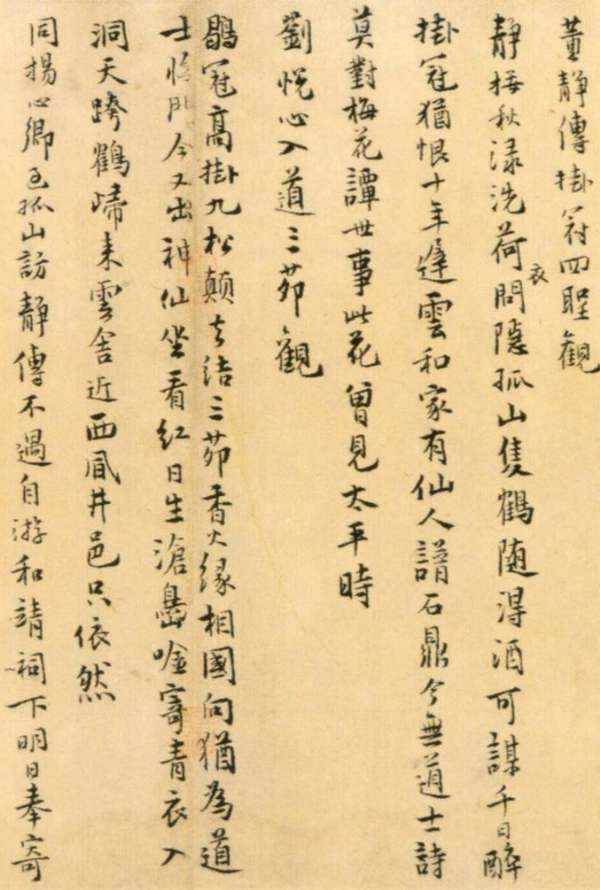 董靜傳掛冠四聖觀
靜挼秋渌洗荷衣問隱孤山隻鶴随淂酒可謀千日醉
掛冠猶恨十年遲雲和家有仙人譜石鼎今無道士詩
莫對梅花譚世事此花曾見太平時
劉悅心入道三茆觀
鶡冠高掛九松顛去結三茆香火緣相國向猶為道
士將門今又出神仙坐看紅日生滄島唫寄青衣入
洞天跨鶴歸来雲舍近西風井邑只依然
同楊心卿至孤山訪靜傳不遇自游和靖祠下明日奉寄